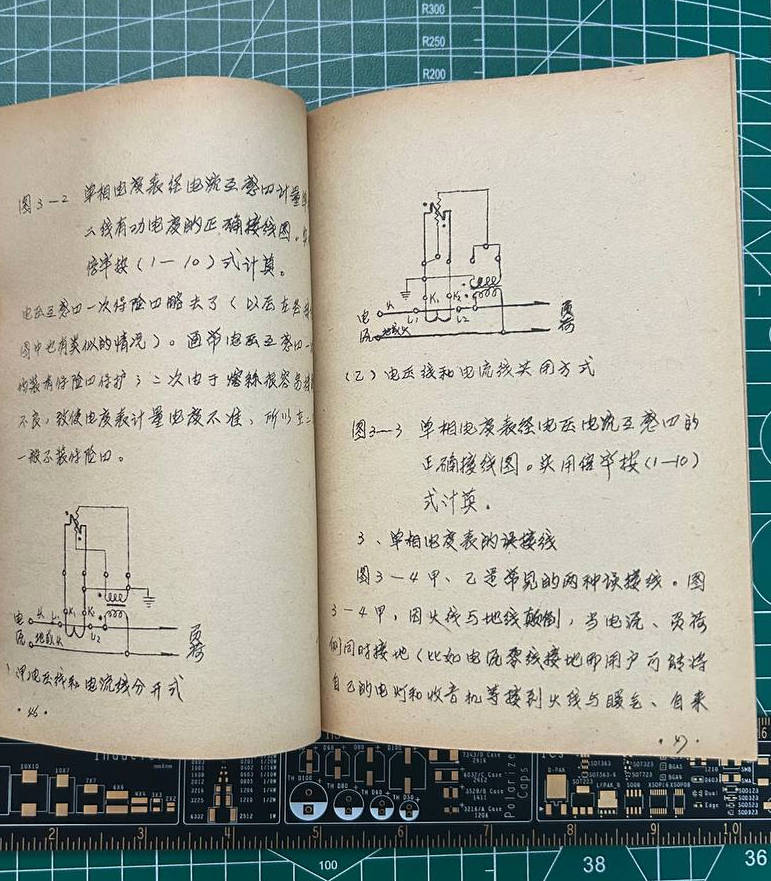 图3-2 单相电度表经电流互感四计量单
二线有功电度的正确接线图。
倍率按(1-10)式计算。
电压互感四一次保险四略去了(以后在各
图中也有类似的情况)。通常电压互感四一
内装有保险四保护;二次由于熔絲很容易
不良,致使电度表计量电度不准,所以在二
一般不装保险四。
K₁ K₂
电 火 L₁
L₂
沅 地或火
负荷
甲 电压线和电流线分开式
·46·
K₁ K₂
电 火
L₁ L₂
沅 地或火
负荷
(乙)电压线和电流线共用方式
图3-3 单相电度表经电压电流互感四的
正确接线图。实用倍率按(1-10)
式计算。
3、单相电度表的误接线
图3-4甲、乙是常见的两种误接线。图
3-4甲,因火线与地线颠倒,当电沅、负荷
侧同时接地(比如电沅零线接地而用户可能将
自己的电灯和收音机等接到火线与暖气、自来
·47·
R300
R250
R200
2 3 4 5 6 7 8 9 10
100
38
36